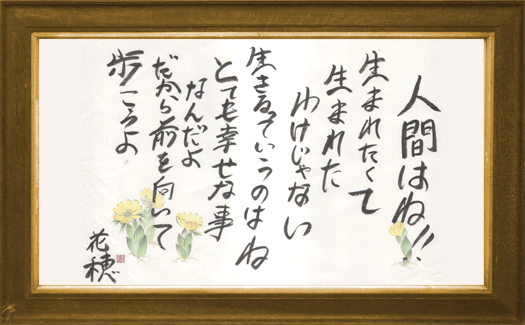 人間はね!!
生まれたくて
生まれた
わけじゃない
生きるっていうのはね
とても幸せな事
なんだよ
だから前を向いて
歩こうよ
花穂